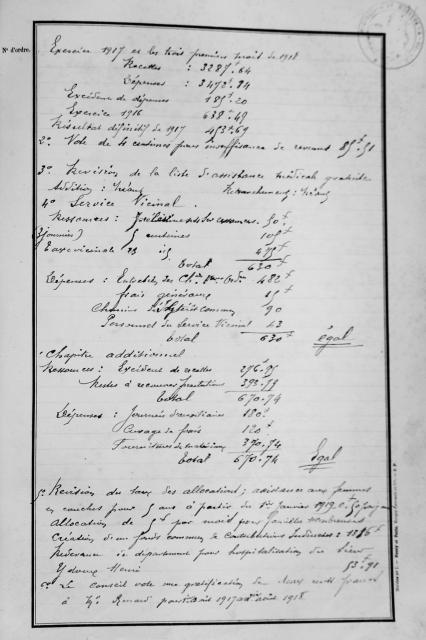 N° d'ordre.
Exercice 1917 et les trois premiers mois de 1918
Recettes : 3287f.64
Dépenses : 3472f.84
Excédent de dépenses 185f.20
Exercice 1916 638f.49
Résultat définitif de 1917 453f.69
2° Vote de 4 centimes pour insuffisance de revenus 85f.51
3° Revision de la liste d'assistance médicale gratuite
Addition : Néant Retranchement : Néant
4° Service Vicinal.
Ressources : 50f
(3 journées) 5 centimes 105f
Taxe vicinale 475f
Total 630f
Dépenses : Entretien des Ch. Ord. 482f
frais généraux 15f
Chemins d'Intérêt commun 90
Personnel du Service Vicinal 43
Total 630f égal
Chapitre additionnel
Ressources : Excédent de recettes 276f.95
Restes à recouvrer prestations 393.79
Total 670.74
Dépenses : Journées 180f
Curage de 120f
Fournitures de 370.74
Total 670.74 Egal
5° Revision du taux des allocations ; assistance aux femmes
en couches pour 5 ans à partir du 1er Janvier 1919
Allocation de 5f par mois pour familles nombreuses
Création d'un fonds commun de Contributions Indirectes : 1886f
Redevance au département pour hospitalisation du Sieur
Henri 53f.91
6° Le conseil vote une gratification de deux cents francs
à Mr. Renard pour août 1917 août 1918